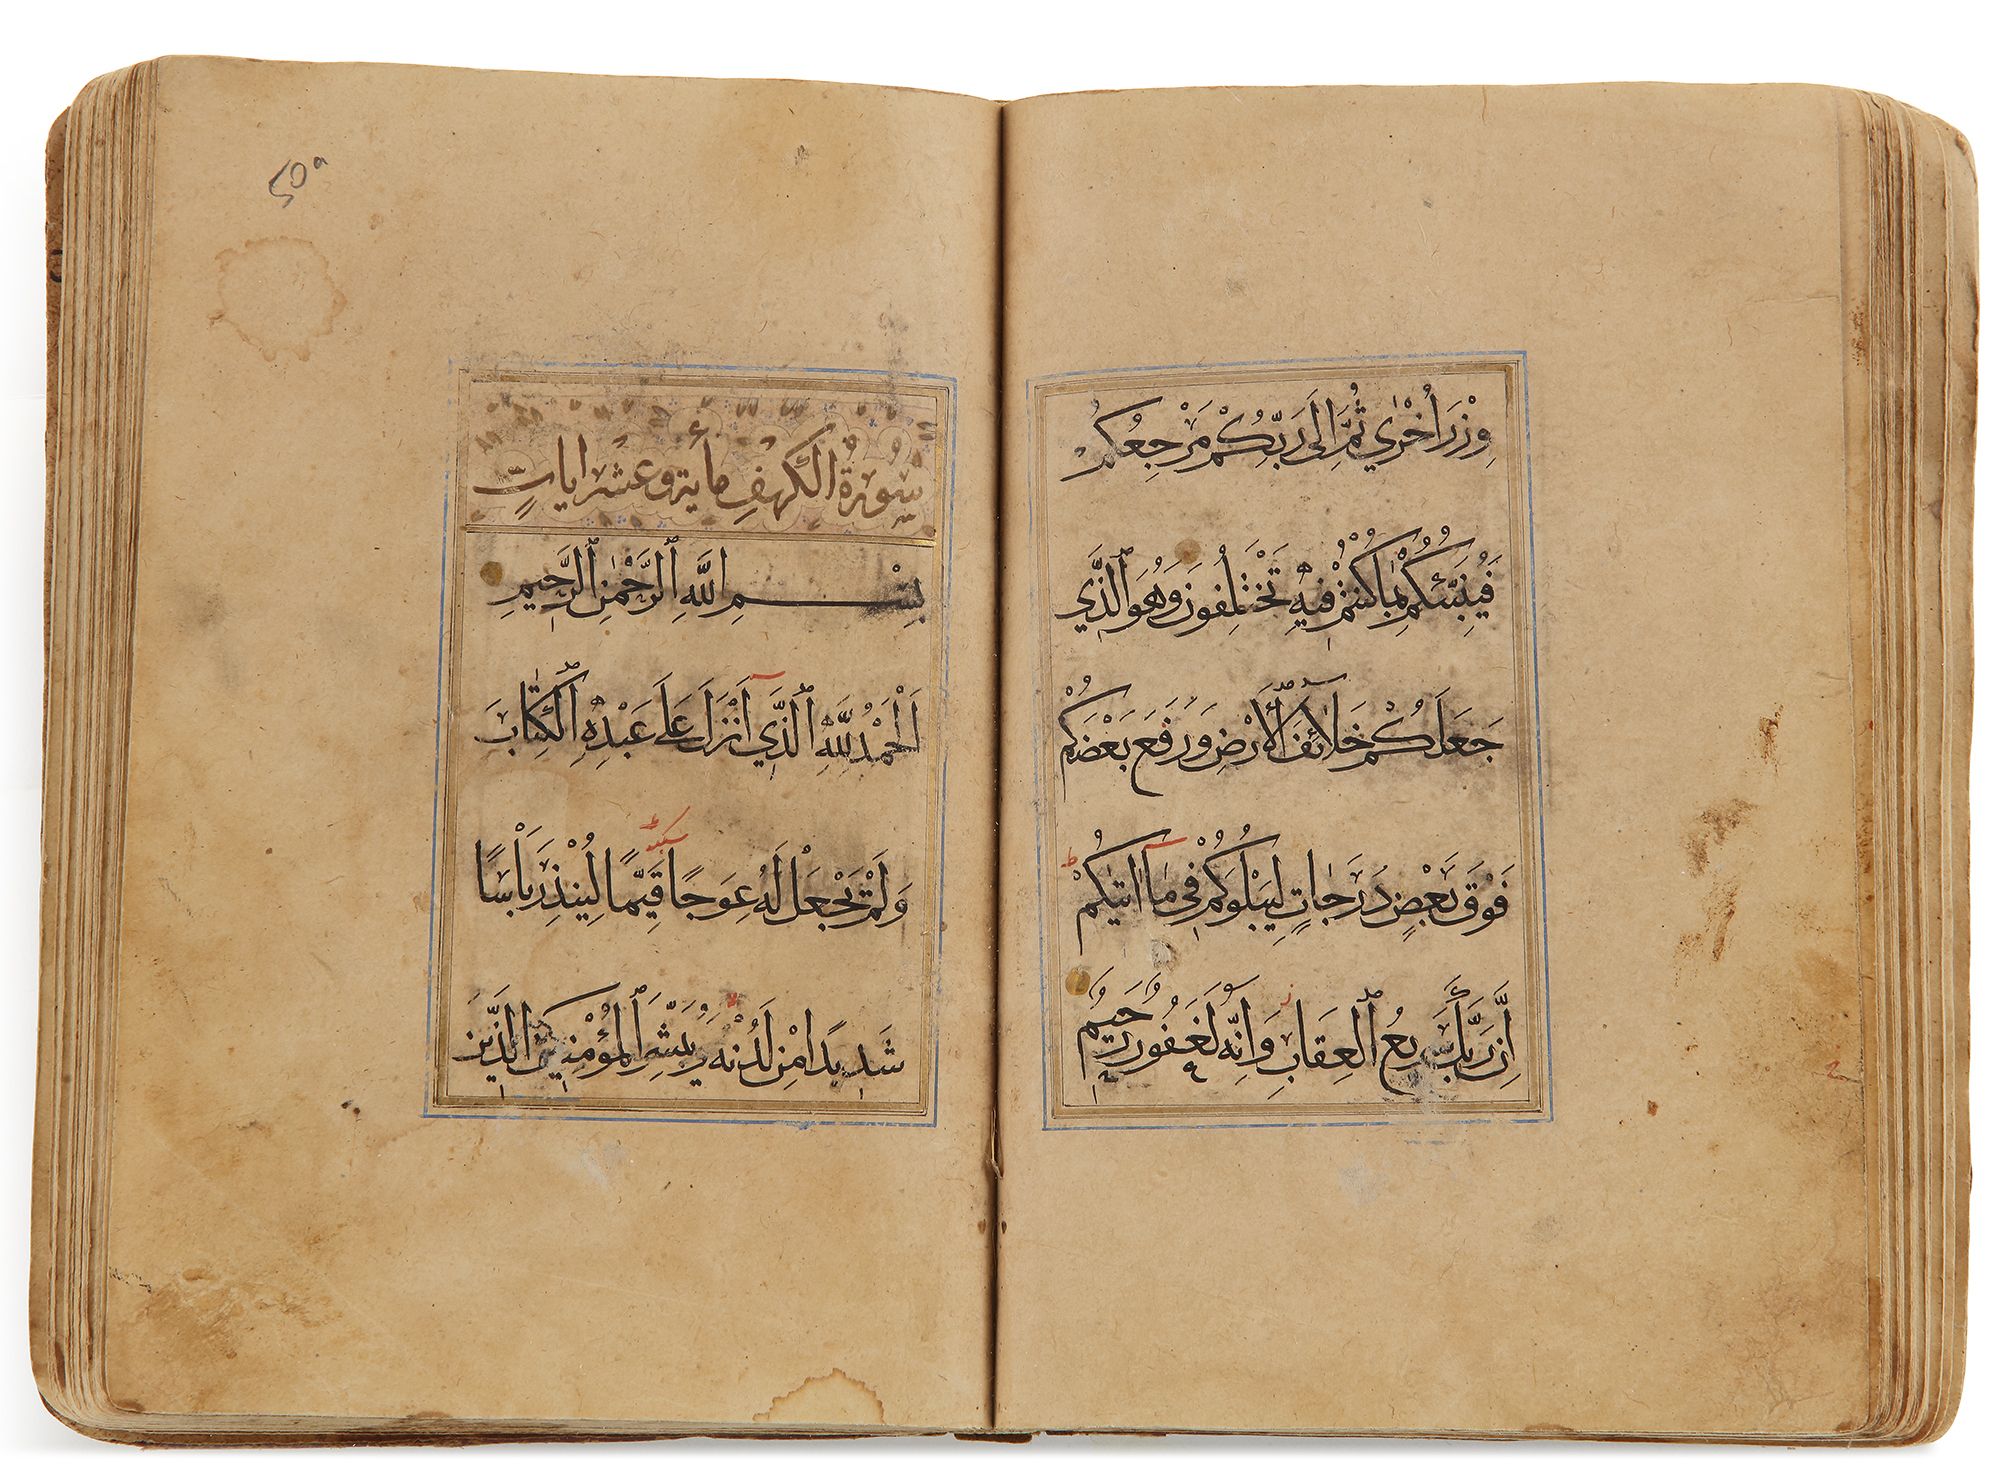 وِزْرَ أُخْرٰي ثُمَّ اِلَى رَبِّكُمْ مَرْجِعُكُمْ
فَيُنَبِّئُكُمْ بِمَا كُنْتُمْ فِيهِ تَخْتَلِفُونَ وَهُوَ الَّذِي
جَعَلَكُمْ خَلَائِفَ الْأَرْضِ وَرَفَعَ بَعْضَكُمْ
فَوْقَ بَعْضٍ دَرَجَاتٍ لِيَبْلُوَكُمْ فِي مَا اٰتٰيكُمْ
اِنَّ رَبَّكَ سَرِيعُ الْعِقَابِ وَاِنَّهُ لَغَفُورٌ رَحِيمٌ
50a
سُورَةُ الْكَهْفِ مأية وعَشْرُ اياتٍ
بِسْمِ اللَّهِ الرَّحْمٰنِ الرَّحِيمِ
اَلْحَمْدُ لِلَّهِ الَّذِي أَنْزَلَ عَلَى عَبْدِهِ الْكِتٰبَ
وَلَمْ يَجْعَلْ لَهُ عِوَجًا قَيِّمًا لِيُنْذِرَ بَأْسًا
شَدِيدًا مِنْ لَدُنْهُ وَيُبَشِّرَ الْمُؤْمِنِينَ الَّذِينَ